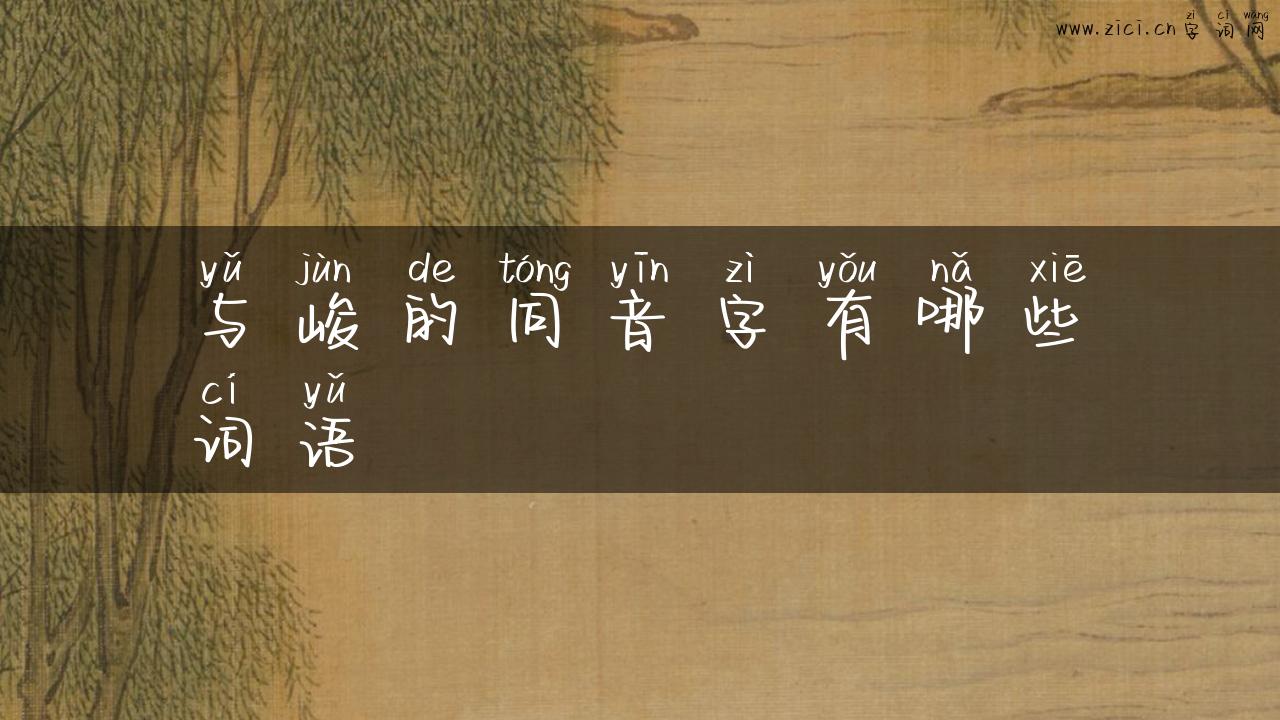 zì cí wǎng
www.zici.cn 字词网
yǔ jùn de tóng yīn zì yǒu nǎ xiē
与峻的同音字有哪些
cí yǔ
词语